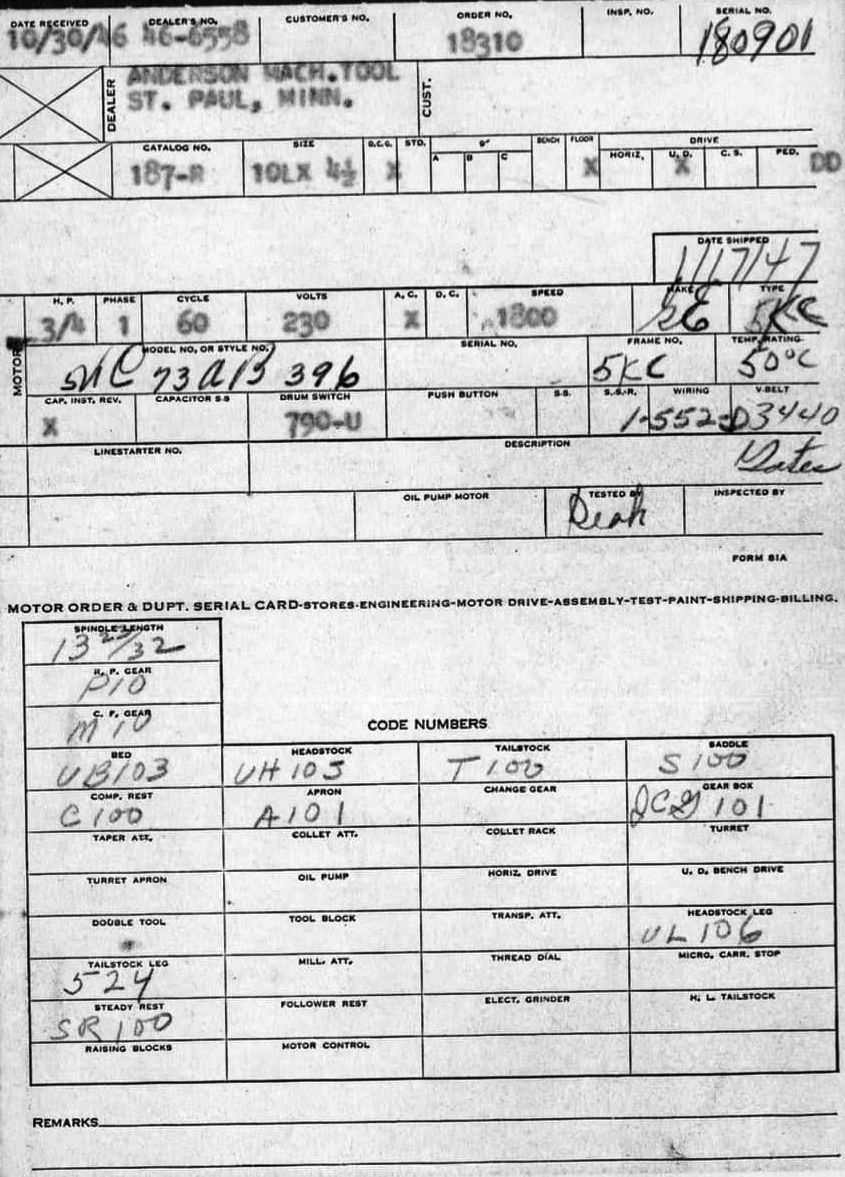 DATE RECEIVED DEALER'S NO. CUSTOMER'S NO. ORDER NO. INSP. NO. SERIAL NO.
10/30/46 46-6558 18310 180901
DEALER ANDERSON MACH.TOOL CUST.
ST. PAUL, MINN.
CATALOG NO. SIZE Q.C.G. STD. 9" BENCH FLOOR DRIVE
A B C HORIZ. U. D. C. S. PED.
187-R 10LX 4½ X X X DD
DATE SHIPPED
1/17/47
MOTOR
H. P. PHASE CYCLE VOLTS A. C. D. C. SPEED MAKE TYPE
3/4 1 60 230 X 1800 GE 5KC
MODEL NO. OR STYLE NO. SERIAL NO. FRAME NO. TEMP. RATING
5KC 73AB 396 5KC 50°C
CAP. INST. REV. CAPACITOR S-S DRUM SWITCH PUSH BUTTON S.S. S.S.R. WIRING V-BELT
X 790-U 1-552-D3440
LINESTARTER NO. DESCRIPTION
Gates
OIL PUMP MOTOR TESTED BY INSPECTED BY
FORM 81A
MOTOR ORDER & DUPT. SERIAL CARD-STORES-ENGINEERING-MOTOR DRIVE-ASSEMBLY-TEST-PAINT-SHIPPING-BILLING.
SPINDLE LENGTH
13 23/32
R. P. GEAR
P10
C. F. GEAR
M 10
CODE NUMBERS
BED HEADSTOCK TAILSTOCK SADDLE
UB103 UH103 T100 S100
COMP. REST APRON CHANGE GEAR GEAR BOX
C100 A101 QCG 101
TAPER ATT. COLLET ATT. COLLET RACK TURRET
TURRET APRON OIL PUMP HORIZ. DRIVE U. D. BENCH DRIVE
DOUBLE TOOL TOOL BLOCK TRANSP. ATT. HEADSTOCK LEG
UL106
TAILSTOCK LEG MILL. ATT. THREAD DIAL MICRO. CARR. STOP
524
STEADY REST FOLLOWER REST ELECT. GRINDER H. L. TAILSTOCK
SR100
RAISING BLOCKS MOTOR CONTROL
REMARKS